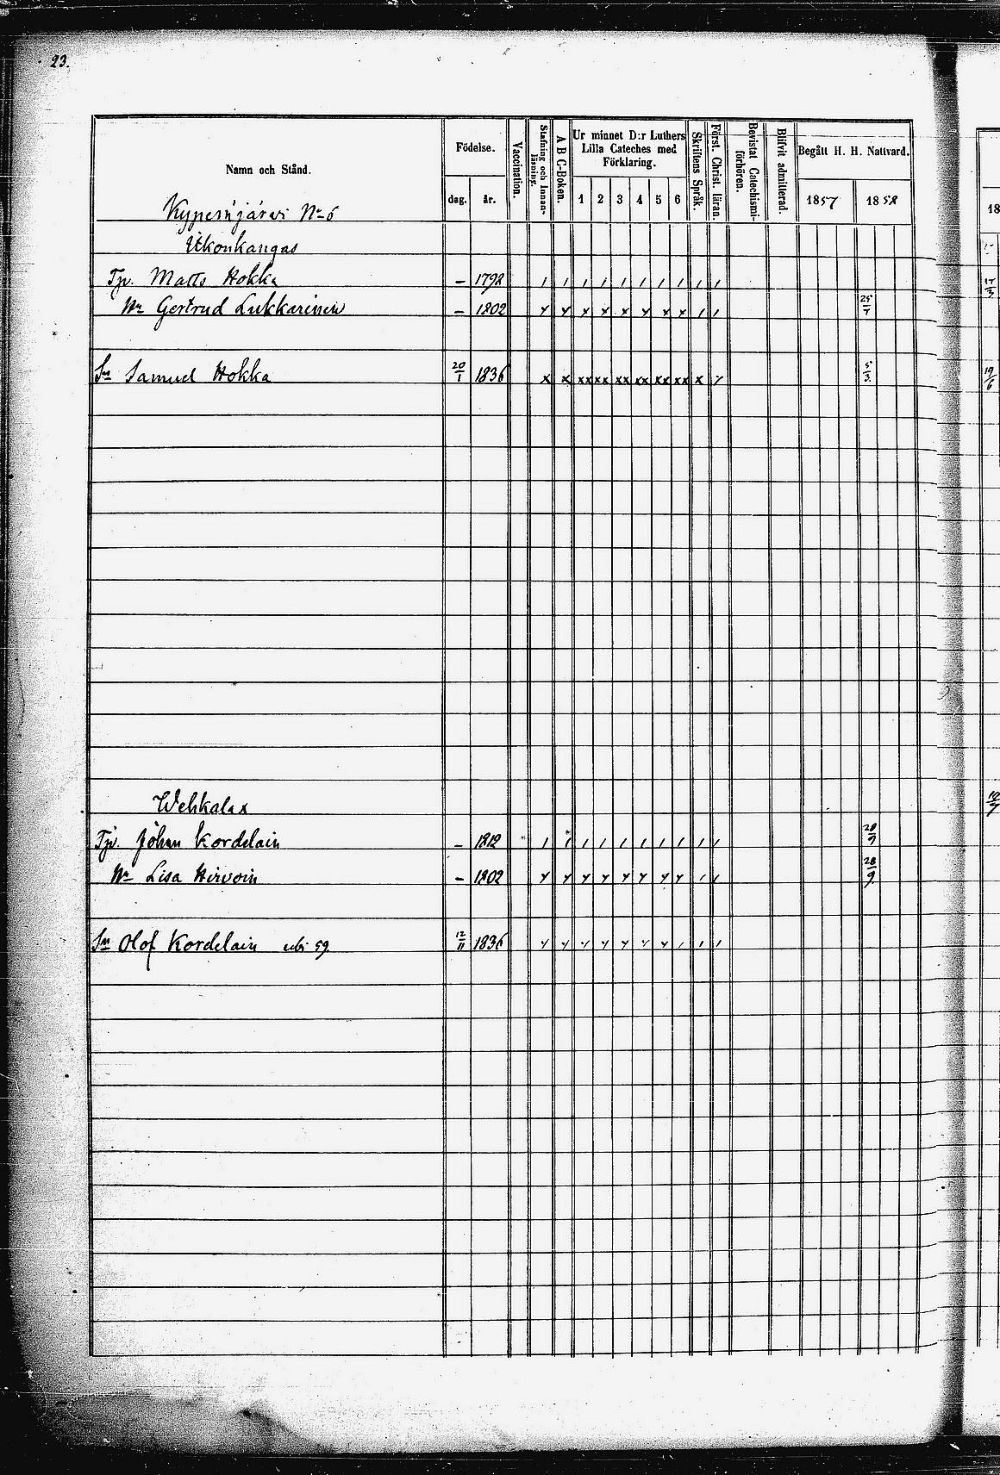 23.
Namn och Stånd.
Födelse.
dag.
år.
Vaccination.
Stafning och Innan-
läsning.
A B C-Boken.
Ur minnet D:r Luthers
Lilla Cateches med
Förklaring.
1 2 3 4 5 6
Skriftens Språk.
Förest. Christ. läran.
Bevistat Catechismi-
förhören.
Blifvit admitterad.
Begått H. H. Nattvard.
1857 1858
18
No 6
Ukonkangas
Tjv. Matts Hokka – 1792
17/3
Hu Gertrud Lukkarinen – 1802 x x x x x x x x 25/7
Sn Samuel Hokka 20/1 1836 x x xx xx xx xx xx xx x 5/3
19/6
Wehkalax
Tjv. Johan Kordelain – 1812 28/9
Hu Lisa Hirvoin – 1802 28/9
Sn Olof Kordelain 59 12/11 1836